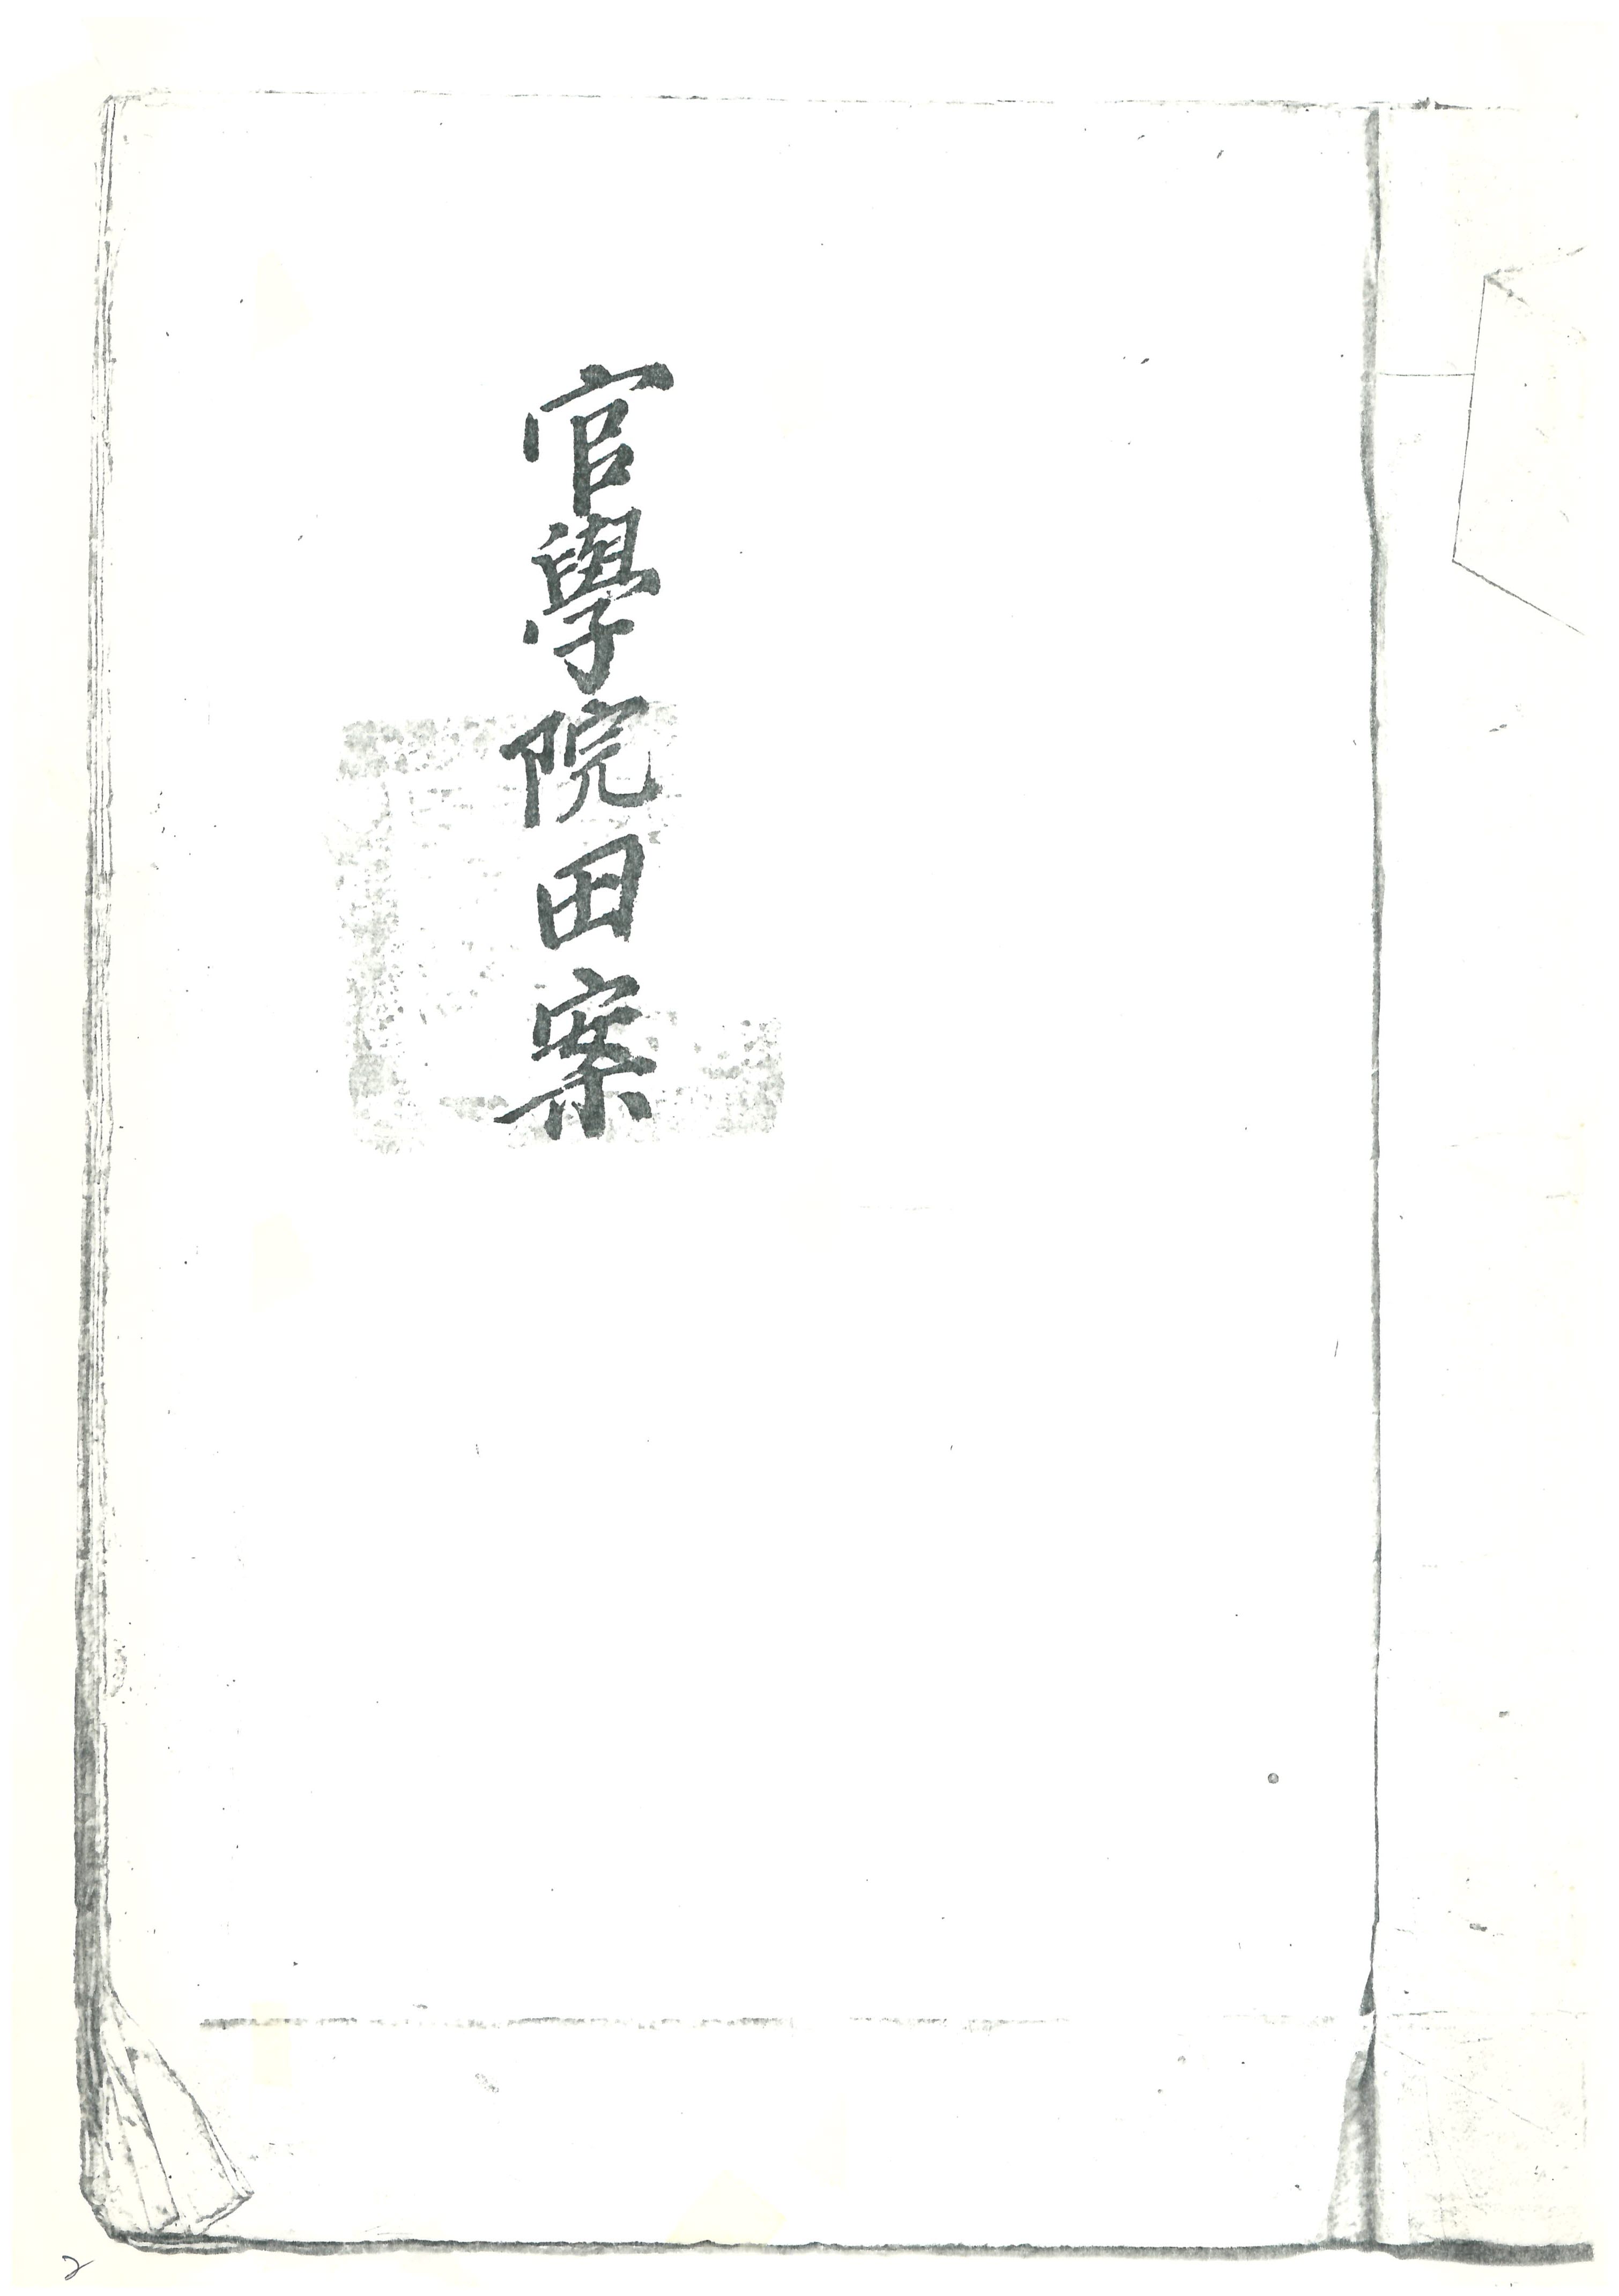 官學院田案
2